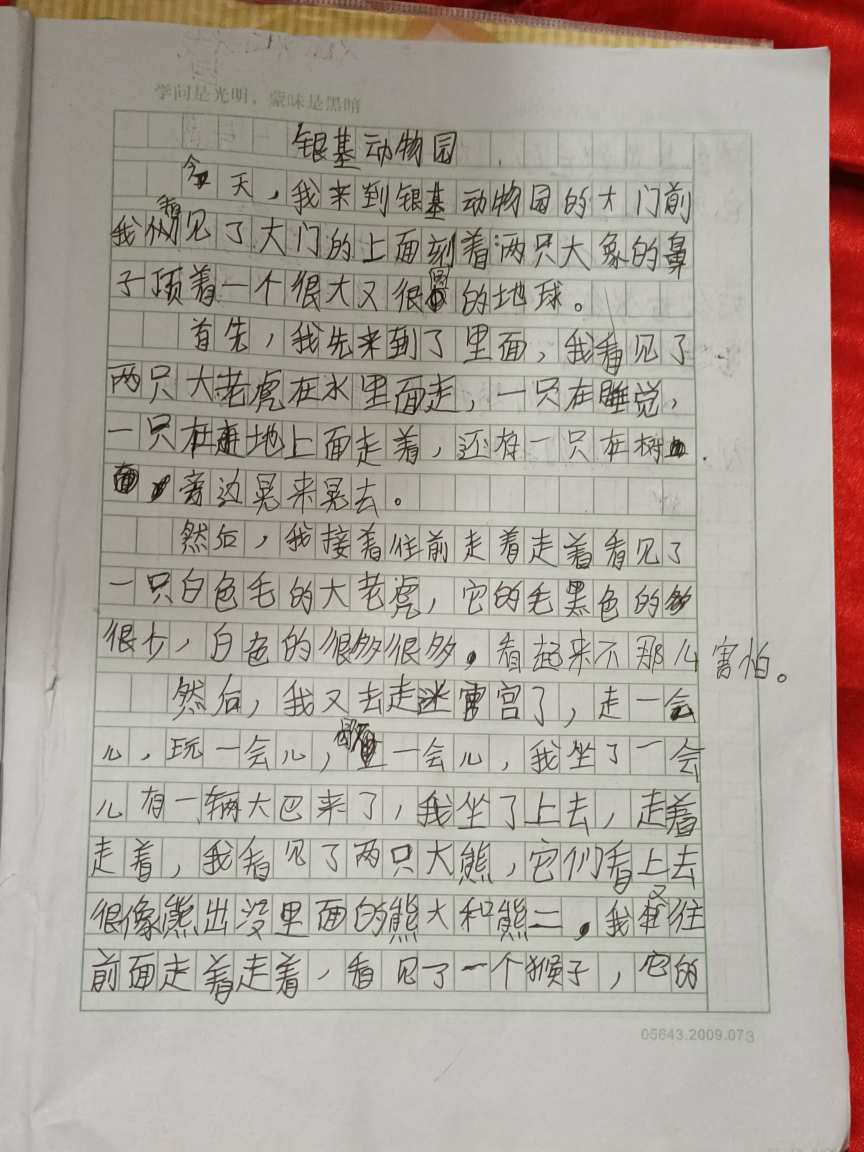 学问是光明，蒙昧是黑暗
银基动物园
今天，我来到银基动物园的大门前
我从看见了大门的上面刻着两只大象的鼻
子顶着一个很大又很圆的地球。
首先，我先来到了里面，我看见了
两只大老虎在水里面走，一只在睡觉，
一只在地上面走着，还有一只在树
旁边晃来晃去。
然后，我接着往前走着走着看见了
一只白色毛的大老虎，它的毛黑色的
很少，白色的很多很多。看起来不那么害怕。
然后，我又去走迷宫了，走一会
儿，玩一会儿，一会儿，我坐了一会
儿有一辆大巴来了，我坐了上去，走着
走着，我看见了两只大熊，它们看上去
很像熊出没里面的熊大和熊二。我又往
前面走着走着，看见了一个猴子，它的
05643.2009.073